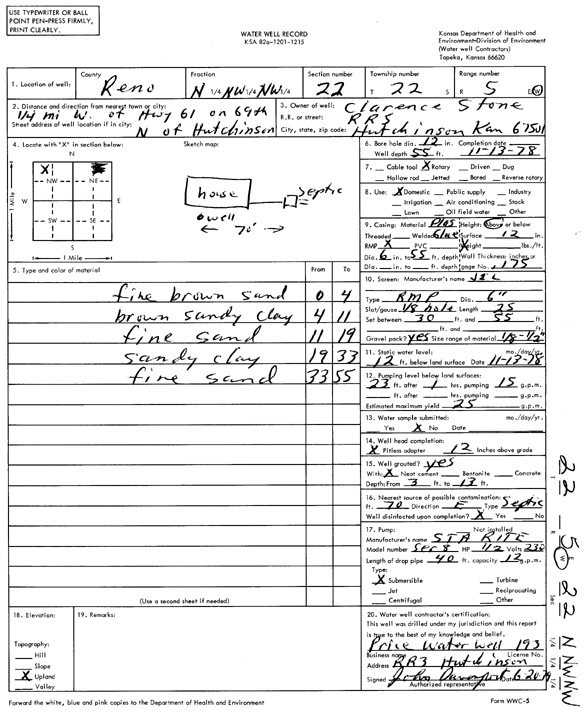 USE TYPEWRITER OR BALL
POINT PEN-PRESS FIRMLY,
PRINT CLEARLY.
WATER WELL RECORD
KSA 82a-1201-1215
Kansas Department of Health and
Environment-Division of Environment
(Water well Contractors)
Topeka, Kansas 66620
1. Location of well: County Reno Fraction N 1/4 NW 1/4 NW 1/4 Section number 22 Township number T 22 S Range number R 5 E W
2. Distance and direction from nearest town or city: 1/4 mi W. of Hwy 61 on 69th
Street address of well location if in city: N of Hutchinson
3. Owner of well: Clarence Stone
R.R. or street: RR5
City, state, zip code: Hutchinson Kan 67501
4. Locate with "X" in section below:
N
X
NW NE
W E
SW SE
S
1 Mile
1 Mile
Sketch map:
house
septic
o well
70'
5. Type and color of material From To
fine brown sand 0 4
brown sandy clay 4 11
fine sand 11 19
sandy clay 19 33
fine sand 33 55
(Use a second sheet if needed)
6. Bore hole dia. 12 in. Completion date
Well depth 55 ft. 11-13-78
7. Cable tool X Rotary Driven Dug
Hollow rod Jetted Bored Reverse rotary
8. Use: X Domestic Public supply Industry
Irrigation Air conditioning Stock
Lawn Oil field water Other
9. Casing: Material Plas Height: Above or below
Threaded Welded Glue Surface 12 in.
RMP X PVC Weight lbs./ft.
Dia. 6 in. to 55 ft. depth Wall Thickness: inches or
Dia. in. to ft. depth gage No. .175
10. Screen: Manufacturer's name
Type RMP Dia. 6"
Slot/gauze 1/8 hole Length 25
Set between 30 ft. and 55 ft.
ft. and ft.
Gravel pack? yes Size range of material 1/8-1/2"
11. Static water level: mo./day/yr.
12 ft. below land surface Date 11-13-78
12. Pumping level below land surfaces:
23 ft. after 1 hrs. pumping 15 g.p.m.
ft. after hrs. pumping g.p.m.
Estimated maximum yield 25 g.p.m.
13. Water sample submitted: mo./day/yr.
Yes X No Date
14. Well head completion:
X Pitless adapter 12 Inches above grade
15. Well grouted? yes
With: X Neat cement Bentonite Concrete
Depth: From 3 ft. to 13 ft.
16. Nearest source of possible contamination:
ft. 70 Direction E Type Septic
Well disinfected upon completion? X Yes No
17. Pump: Not installed
Manufacturer's name STA RITE
Model number Ser 8 HP 1/2 Volts 230
Length of drop pipe 40 ft. capacity 12 g.p.m.
Type:
X Submersible Turbine
Jet Reciprocating
Centrifugal Other
18. Elevation:
Topography:
Hill
Slope
X Upland
Valley
19. Remarks:
20. Water well contractor's certification:
This well was drilled under my jurisdiction and this report
is true to the best of my knowledge and belief.
Price Water Well 193
Business name License No.
Address RR3 Hutchinson
Signed John Davenport Date
Authorized representative
Forward the white, blue and pink copies to the Department of Health and Environment
Form WWC-5
22 5 E W 22 N NW NW
T R Sec 1/4 1/4 1/4